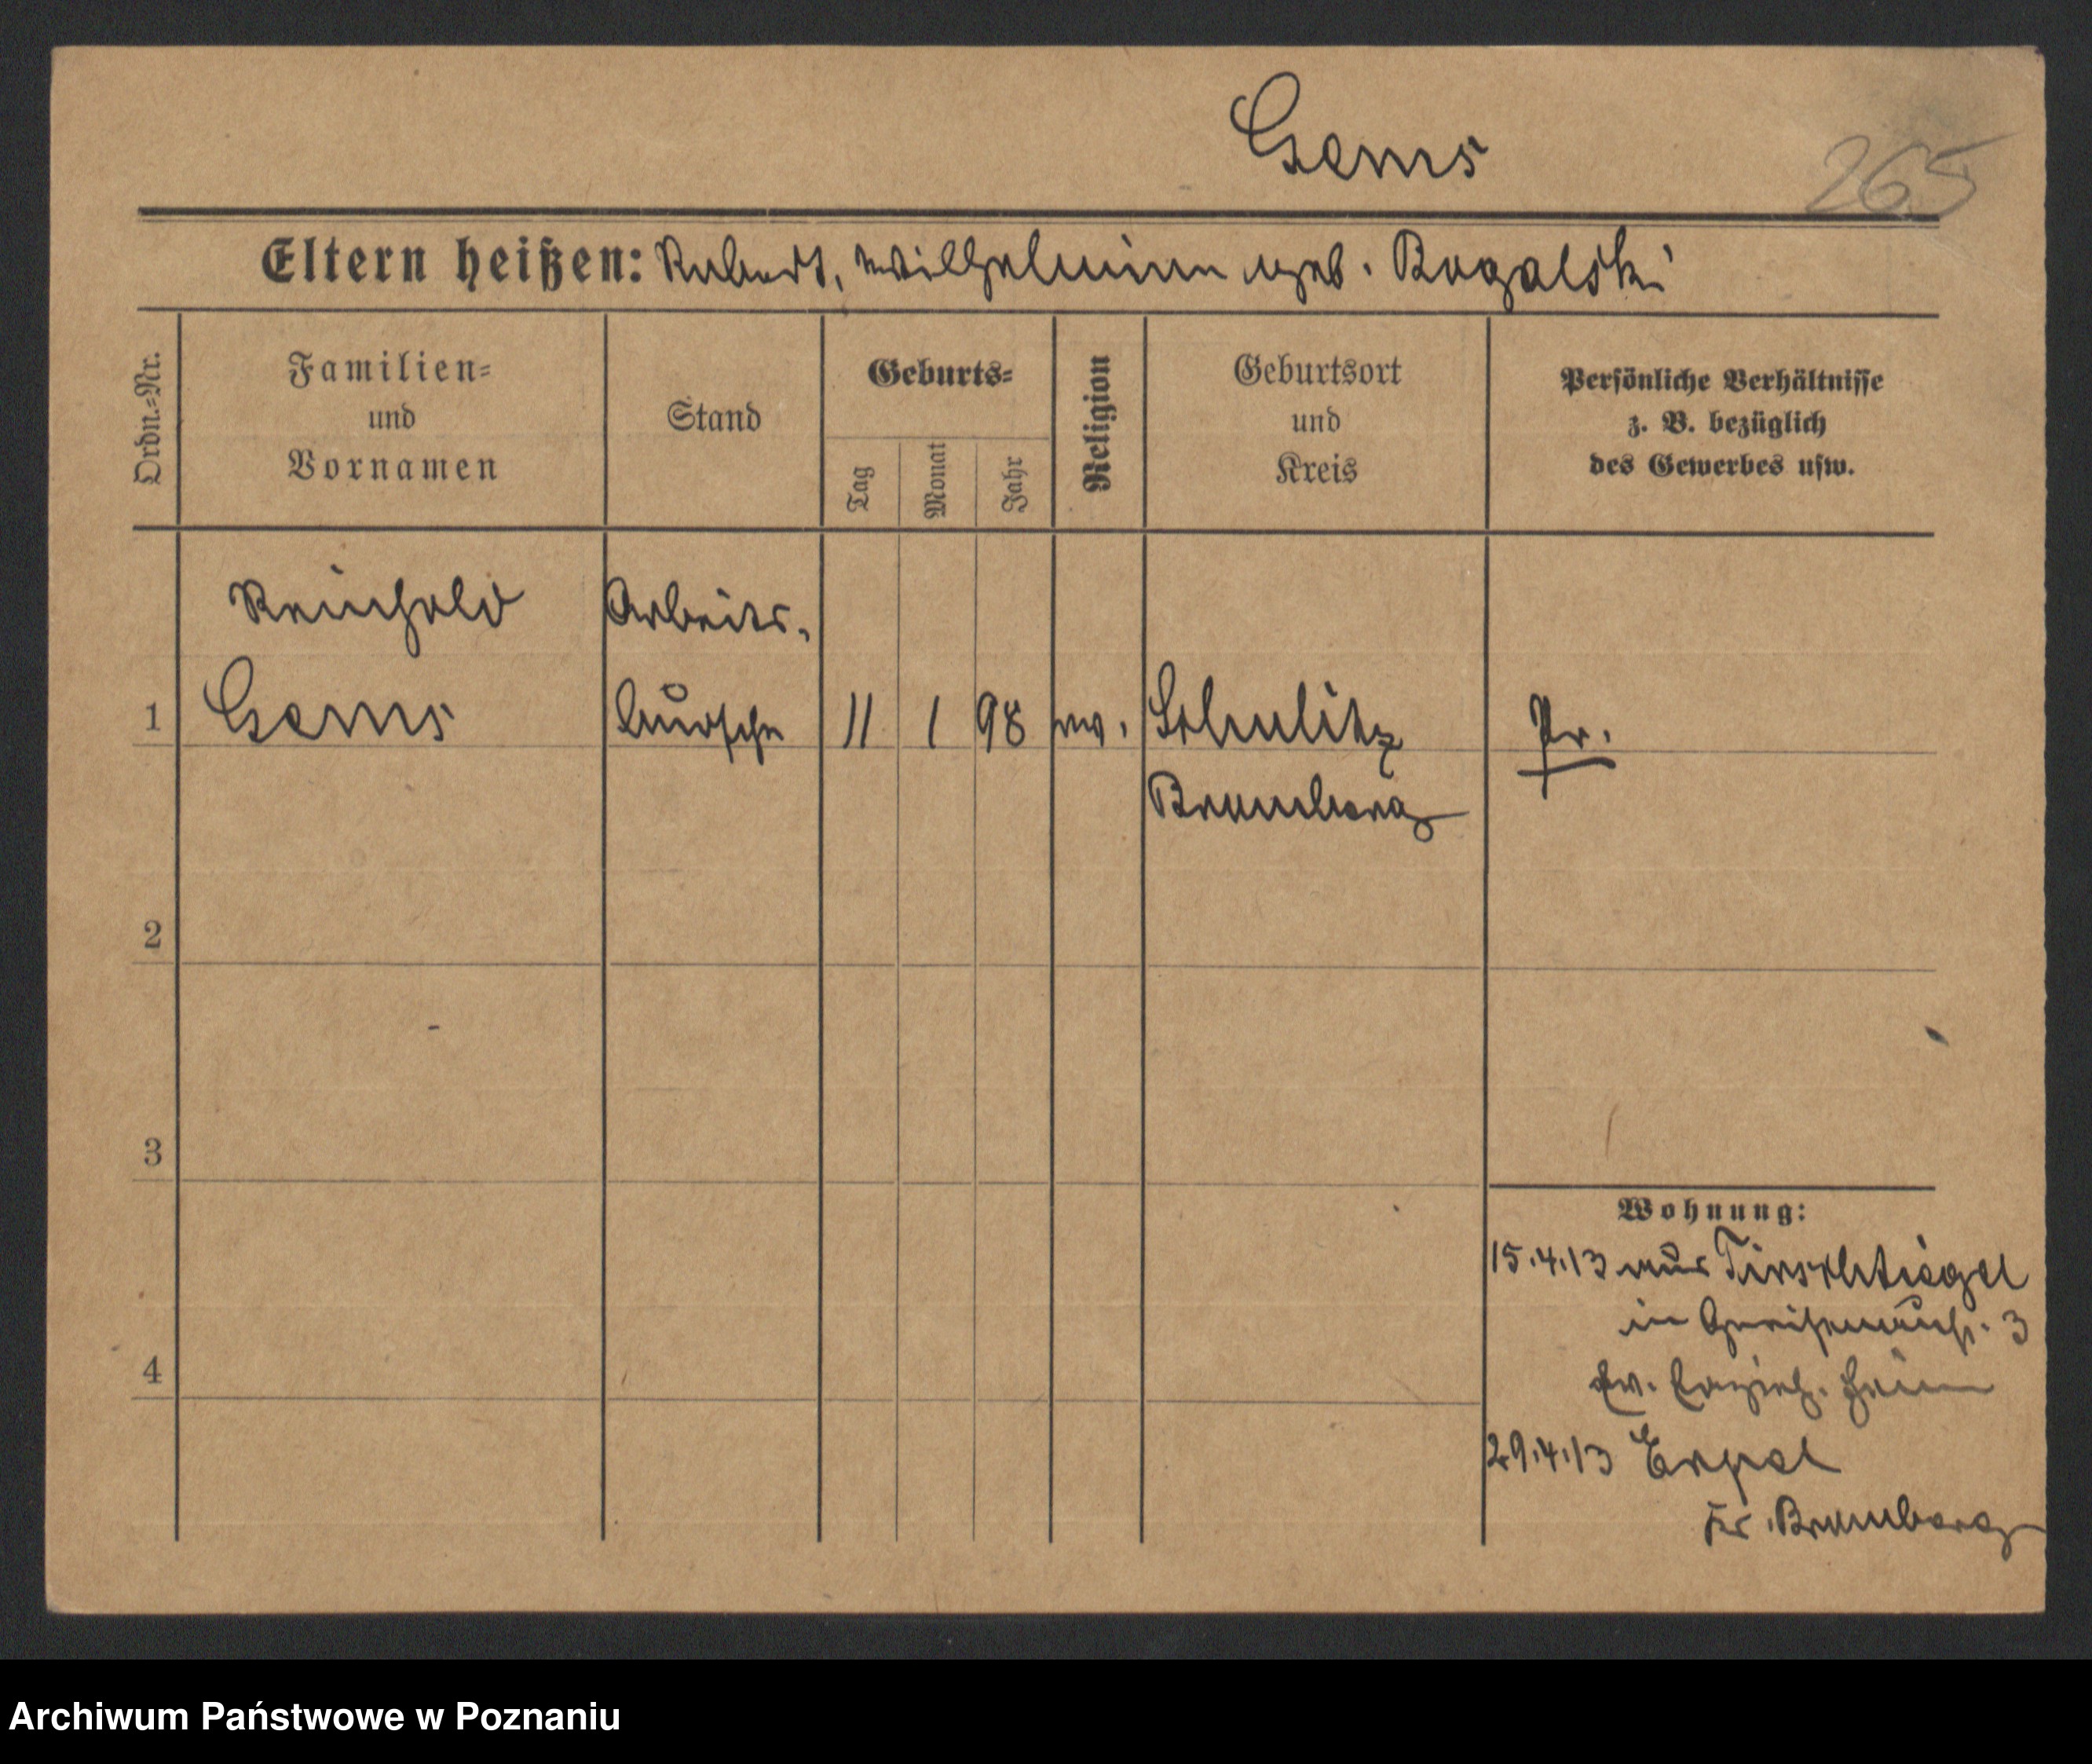 Gems
265
Eltern heißen: Robert, Wilhelmine geb. Rogalski
Ordn.-Nr.
Familien-
und
Vornamen
Stand
Geburts-
Tag
Monat
Jahr
Religion
Geburtsort
und
Kreis
Persönliche Verhältnisse
z. B. bezüglich
des Gewerbes usw.
Reinhold Arbeits-
1 Gems bursche 11 1 98 ev. Schulitz Pr.
Bromberg
2
3
4
Wohnung:
15.4.13 aus Tirschtiegel
in 3
Ev. Erzieh. Heim
29.4.13
Kr. Bromberg
Archiwum Państwowe w Poznaniu